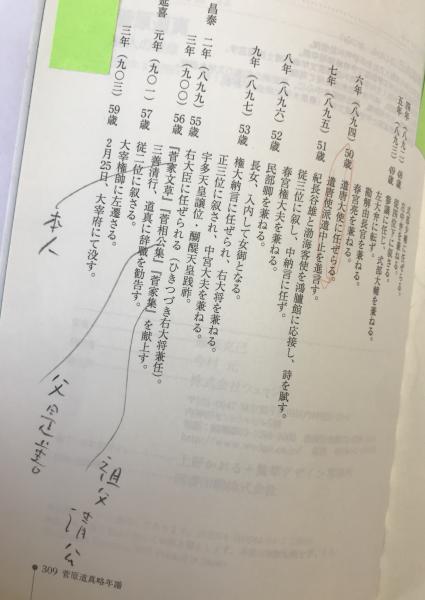 四年(八九二)48歳
従四位下に叙さる。
五年(八九三)49歳 参議に任じ、式部大輔を兼ねる。
左大弁に転ず。
勘解由長官を兼ねる。
春宮亮を兼ねる。
六年(八九四)50歳 遣唐大使に任ぜらる。
遣唐使派遣中止を進言する。
七年(八九五)51歳 紀長谷雄と渤海客使を鴻臚館に応接し、詩を賦す。
従三位に叙し、中納言に任ず。
春宮権大夫を兼ねる。
八年(八九六)52歳 民部卿を兼ねる。
長女、入内して女御となる。
九年(八九七)53歳 権大納言に任ぜられ、右大将を兼ねる。
正三位に叙され、中宮大夫を兼ねる。
宇多天皇譲位 醍醐天皇践祚。
昌泰 二年(八九九)55歳 右大臣に任ぜられる(ひきつづき右大将兼任)。
三年(九〇〇)56歳 『菅家文草』『菅相公集』『菅家集』を献上す。
三善清行、道真に辞職を勧告す。
延喜 元年(九〇一)57歳 従二位に叙さる。
大宰権帥に左遷さる。
三年(九〇三)59歳 2月25日、大宰府にて没す。
祖父 清公
父 是善
本人
309 菅原道真略年譜